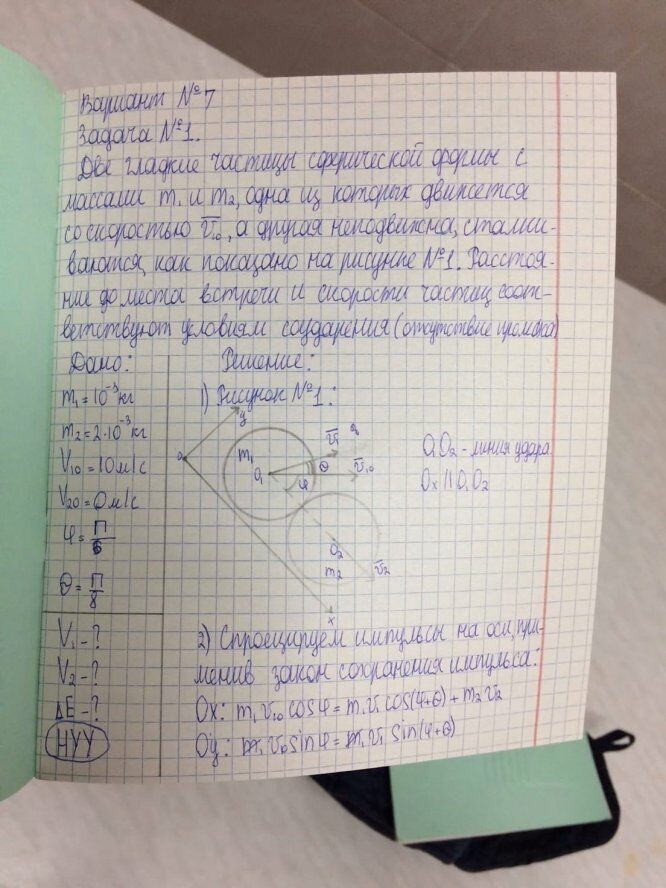 Вариант №7
Задача №1.
Две гладкие частицы сферической формы с
массами m₁ и m₂, одна из которых движется
со скоростью V̅₁₀, а другая неподвижна, сталки-
ваются, как показано на рисунке №1. Расстоя-
ние до места встречи и скорости частиц соот-
ветствуют условиям соударения (отсутствие промаха)
Дано:
m₁=10⁻³кг
m₂=2·10⁻³кг
V₁₀=10м/с
V₂₀=0м/с
φ=π/6
θ=π/8
V₁-?
V₂-?
ΔE-?
НУУ
Решение:
1) Рисунок №1:
y
m₁
O₁
V̅₁
θ
φ
V̅₁₀
O
O₂
m₂
V̅₂
x
O₁O₂ - линия удара
Ox || O₁O₂
2) Спроецируем импульсы на оси, при-
менив закон сохранения импульса:
Ox: m₁V₁₀cosφ=m₁V₁cos(φ+θ)+m₂V₂
Oy: m₁V₁₀sinφ=m₁V₁sin(φ+θ)